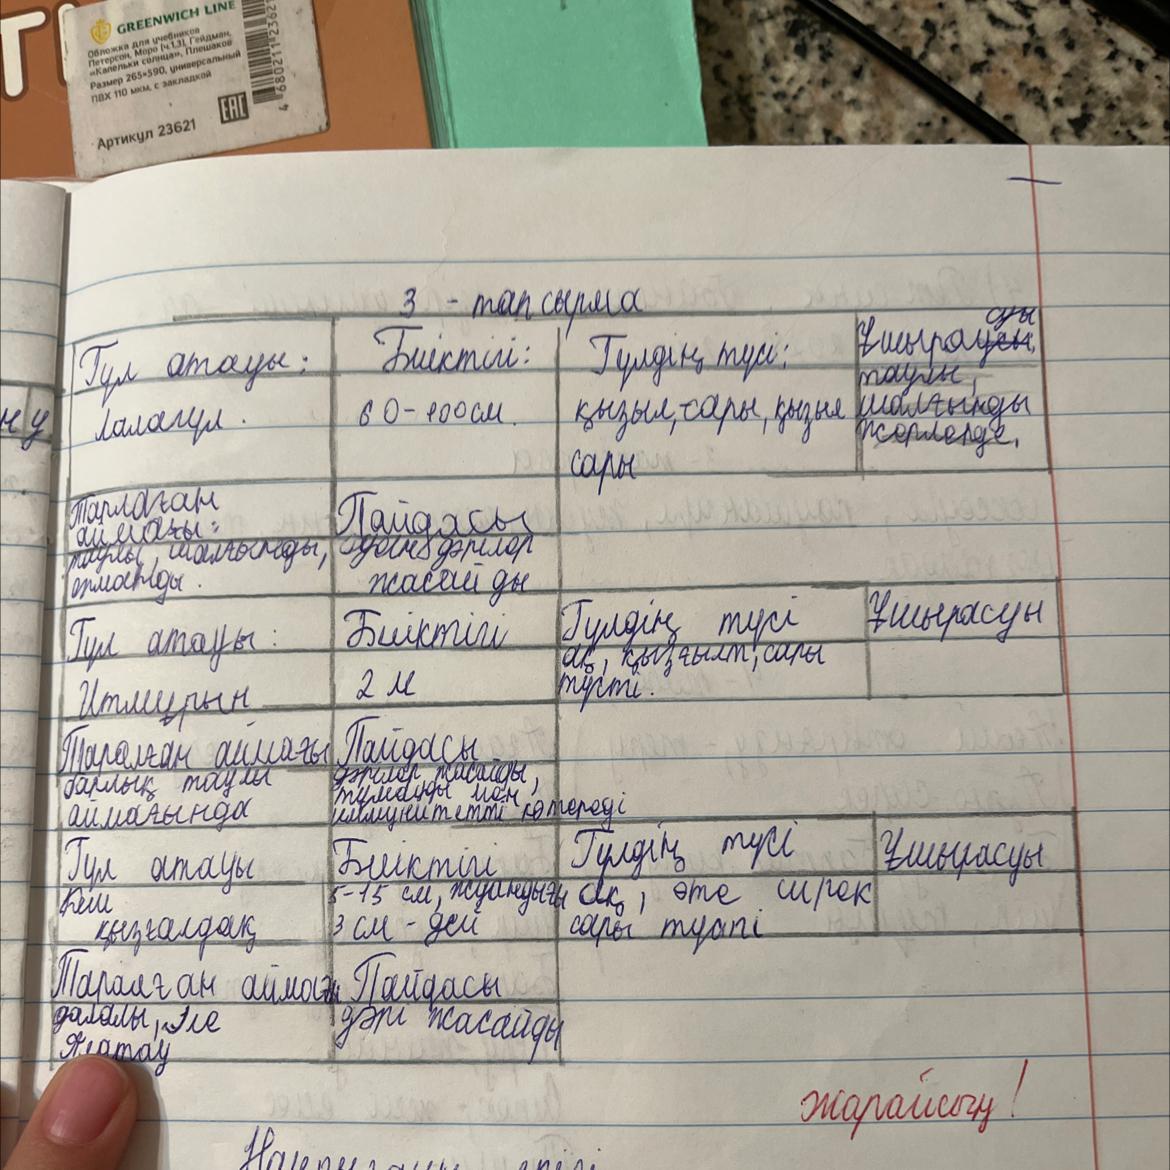 GREENWICH LINE
Обложка для учебников
Петерсон, Моро (ч.1,3), Гейдман,
«Капельки солнца», Плешаков
Размер 265×590, универсальный
ПВХ 110 мкм, с закладкой
Артикул 23621
EAC
3 - тапсырма
Гүл атауы: Биіктігі: Гүлдің түсі: Ұшырауды
лалагүл. 60-100см. қызыл, сары, қызыл сары таулы, шалғынды жерлерде,
Тарлаған аймағы: Пайдасы
таулы, шалғынды, орманды. дәрілер жасайды
Гүл атауы: Биіктігі Гүлдің түсі Ұшырасуы
Итмұрын 2 м ақ, қызғылт, сары түсті.
Таралған аймағы Пайдасы
барлық таулы аймағында дәрілер жасайды, тұмауды мен иммунитетті көтереді
Гүл атауы Биіктігі Гүлдің түсі Ұшырасуы
Кәш қызғалдақ 5-15 см, жуандығы 3 см-дей ақ, өте сирек сары түсті
Таралған аймағы Пайдасы
далалы, Іле Алатау дәрі жасайды
жарайсың!